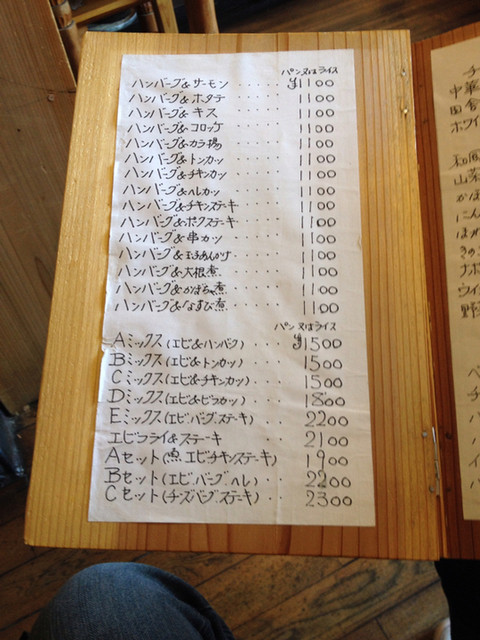 パン又はライス
ハンバーグ&サーモン ····· ¥1100
ハンバーグ&ホタテ ····· 1100
ハンバーグ&キス ····· 1100
ハンバーグ&コロッケ ····· 1100
ハンバーグ&カラ揚 ····· 1100
ハンバーグ&トンカツ ····· 1100
ハンバーグ&チキンカツ ····· 1100
ハンバーグ&ヘレカツ ····· 1100
ハンバーグ&チキンステーキ ···· 1100
ハンバーグ&ポークステーキ ···· 1100
ハンバーグ&串カツ ····· 1100
ハンバーグ&玉子あんかけ ···· 1100
ハンバーグ&大根煮 ····· 1100
ハンバーグ&かぼちゃ煮 ···· 1100
ハンバーグ&なすび煮 ···· 1100
パン又はライス
Aミックス(エビ&ハンバーグ) ·· ¥1500
Bミックス(エビ&トンカツ) ··· 1500
Cミックス(エビ&チキンカツ) ·· 1500
Dミックス(エビ&ビラカツ) ··· 1800
Eミックス(エビ.バーグ.ステーキ) ·· 2200
エビフライ&ステーキ ·· 2100
Aセット(魚 エビチキンステーキ) 1900
Bセット(エビ.バーグ.ヘレ) ·· 2200
Cセット(チーズバーグ.ステーキ) ·· 2300
中華
田舎
ホワイ
和風
山菜
かぼ
にん
ほうれ
きのこ
ナポ
ウイン
野菜